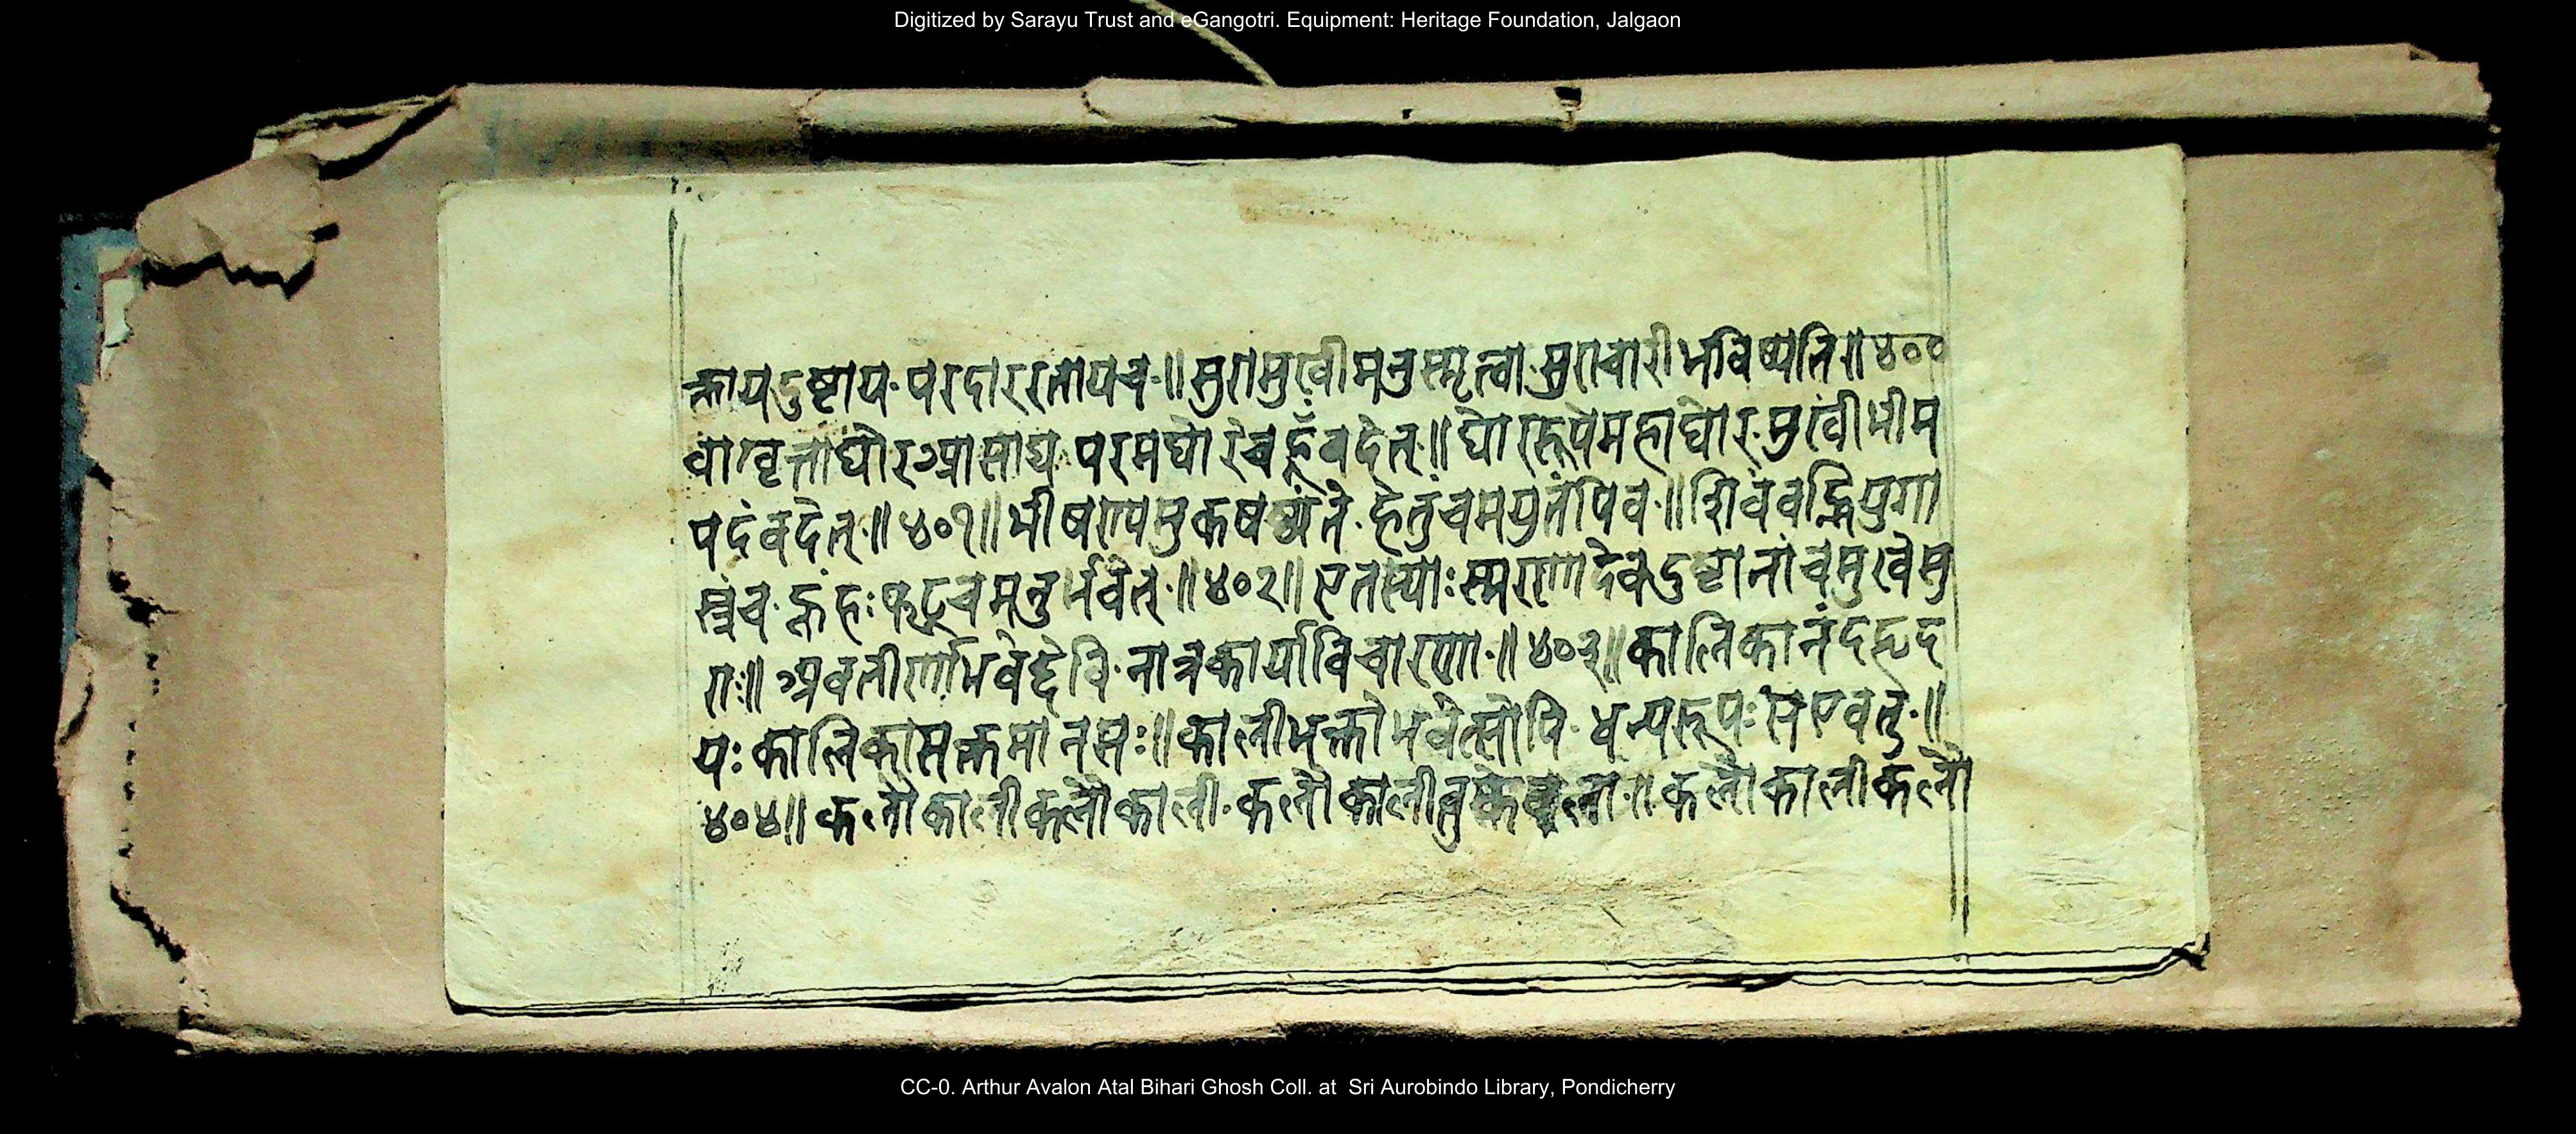 Digitized by Sarayu Trust and eGangotri. Equipment: Heritage Foundation, Jalgaon
क्तायदुष्टाय परदाररतायच ॥ सुरासुखीमनुस्मृत्वा सुराचारीभविष्यति ॥ ४००
परमघोरंचह्रूँवदेत् ॥ घोररूपेमहाघोर मुखीभीम
पदंवदेत् ॥ ४०१ ॥ हेतुंचमयुतंपिव ॥ शिवंवह्नियुगा
स्त्रंच ह्रंहः फट्चमनुर्भवेत् ॥ ४०२ ॥ एतस्याःस्मरणादेवदुष्टानांचमुखेसु
रा ॥ अवतीर्णाभवेद्देवि नात्रकार्याविचारणा ॥ ४०३ ॥ कालिकानंदहृद
यः कालिकासक्तमानसः ॥ कालीभक्तोभवेत्सोपि धन्यरूपःसएवतु ॥
४०४ ॥ कलौकालीकलौकाली कलौकालीतुकेवला ॥ कलौकालीकलौ
CC-0. Arthur Avalon Atal Bihari Ghosh Coll. at Sri Aurobindo Library, Pondicherry